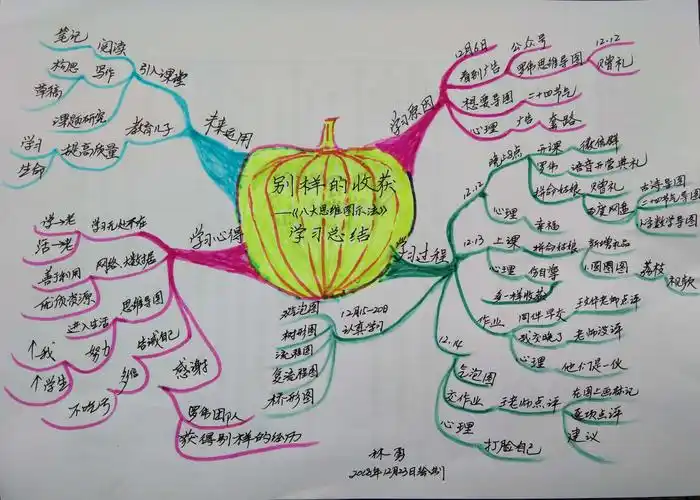 别样的收获
——《八大思维图示法》
学习总结
学习原因
12月6日
看到广告
公众号
罗伟思维导图
12.12
赠礼
想要导图
二十四节气
心理
广告
套路
学习过程
12.12
晚上8点
开课
微信群
罗伟
语音开营典礼
拼命好根
赠礼
古诗导图
二十四节气导图
百度网盘
心理
幸福
12.13
上课
拼命好根
新增礼品
心理
1.圆圈图
荔枝
作业
同伴早交
老师点评
我交晚了
老师没评
心理
他们是一伙
12.14
气泡图
交作业
王老师点评
在图上画标记
逐项点评
建议
心理
打脸自己
12月15-20日
认真学习
双泡图
树形图
流程图
复流程图
桥形图
学习心得
学习无处不在
学一老
活一老
网络、大数据
善于利用
优质资源
思维导图
进入生活
告诫自己
努力
↑我
↑学生
不吃亏
感谢
罗伟团队
获得别样的经历
未来运用
引入课堂
阅读
笔记
写作
构思
草稿
课题研究
教育儿子
提高质量
学习
生命
林勇
2018年12月23日绘制